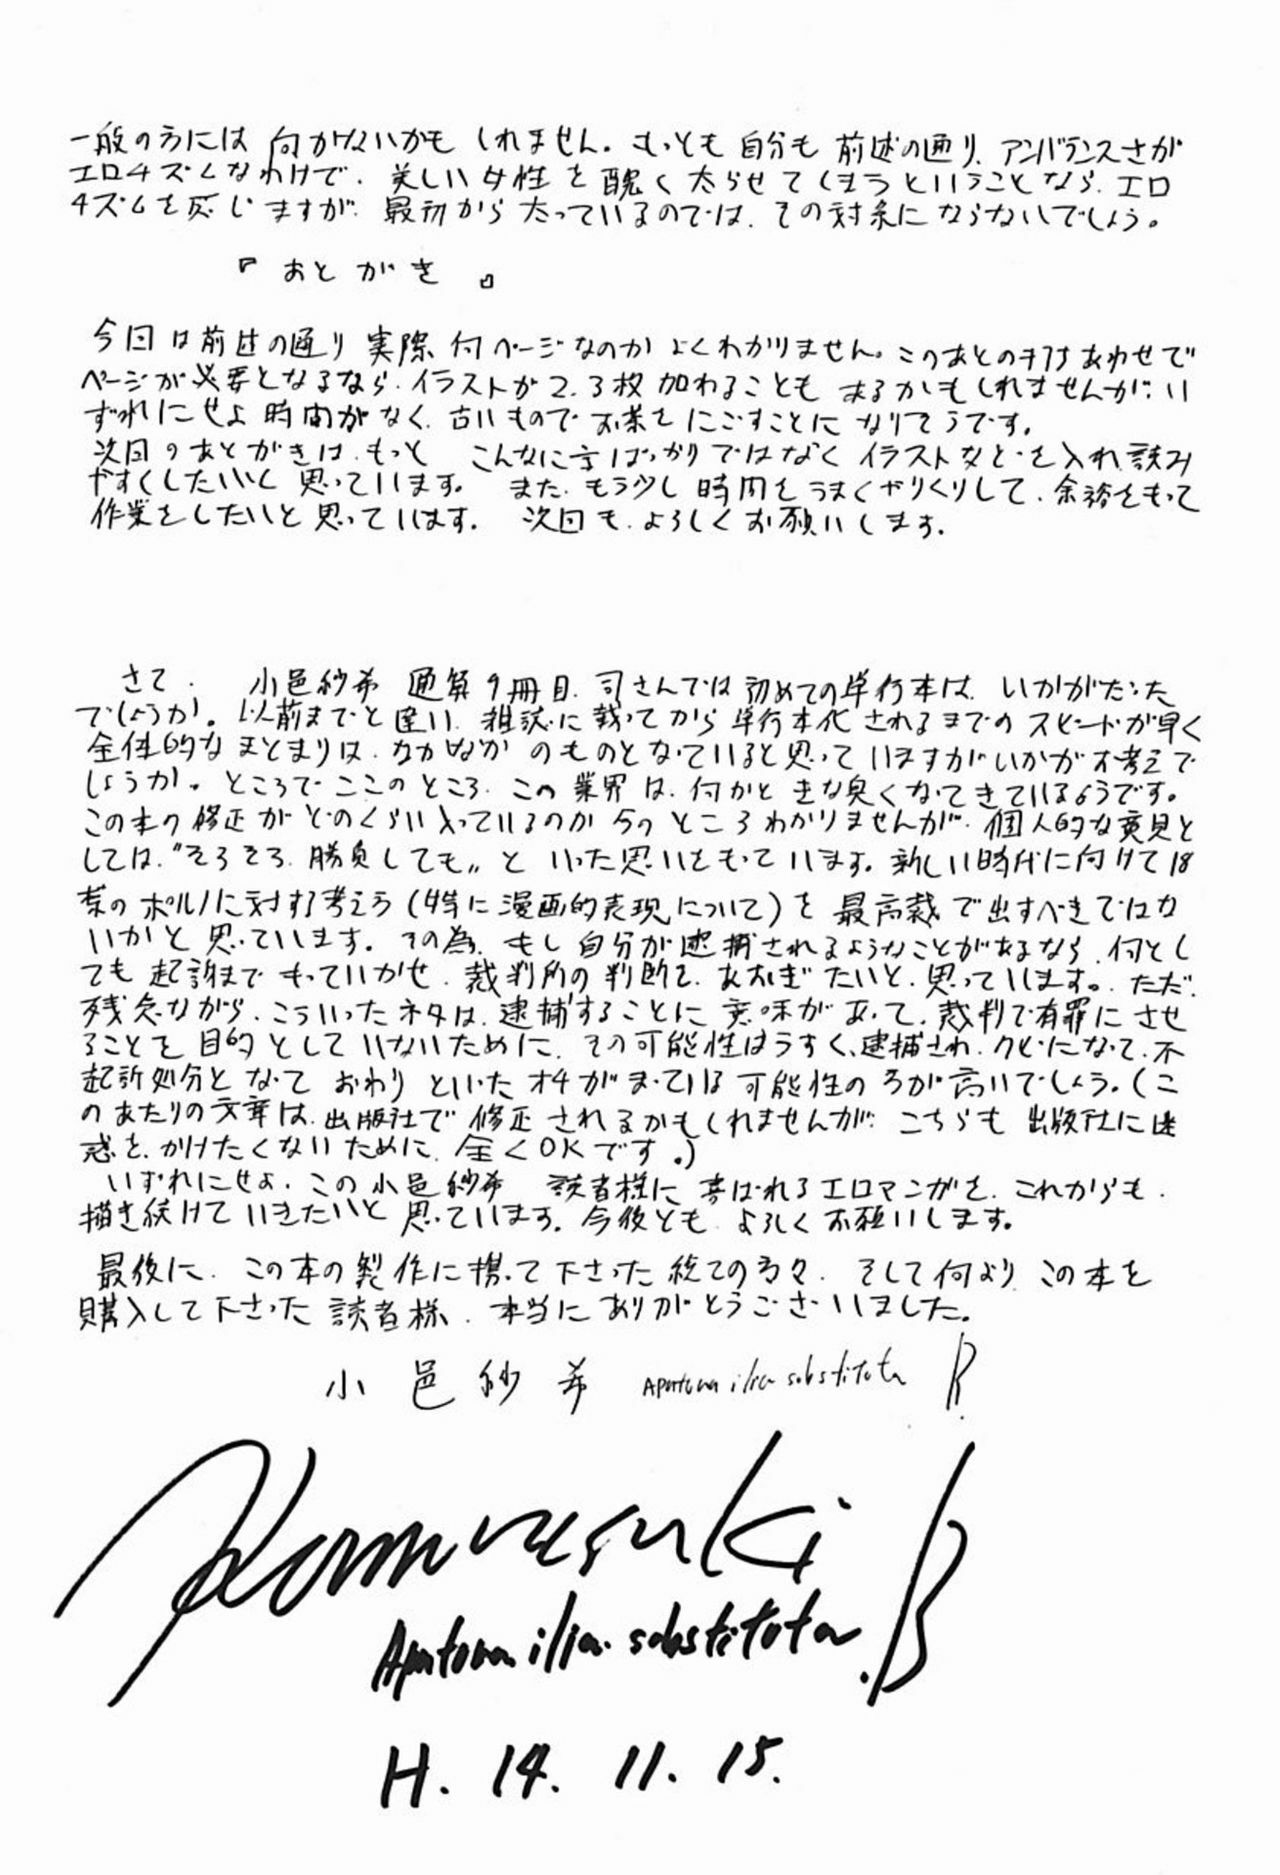 一般の方には 向かないかも しれません。もっとも 自分も 前述の通り、アンバランスさが
エロチズムなわけで、美しい女性を醜く太らせてしまうということなら、エロ
チズムを感じますが、最初から太っているのでは、その対象にならないでしょう。
『あとがき』
今回は前述の通り 実際 何ページなのか よくわかりません。このあとの打ちあわせで
ページが必要となるなら、イラストが2、3枚 加わることも あるかもしれませんが、い
ずれにせよ 時間がなく、古いもので お茶を にごすことに なりそうです。
次回のあとがきは、もっと こんなに字ばっかりではなく イラストなどを入れ、読み
やすくしたいと 思っています。 また、もう少し 時間を うまくやりくりして、余裕をもって
作業をしたいと思っています。 次回も、よろしくお願いします。
さて、 小邑紗希 通算9冊目、司さんでは 初めての単行本は、いかがだった
でしょうか。以前までと違い、雑誌に載ってから 単行本化 されるまでの スピードが早く
全体的な まとまりは、なかなか のものとなっていると思って いますが いかがお考えで
しょうか。ところで ここのところ、この 業界は、何かと きな臭くなってきているようです。
この本の 修正が どのくらい入っているのか 今の ところ わかりませんが、個人的な意見と
しては、"そろそろ、勝負しても" と いった思いをもっています。新しい時代に向けて 18
禁の ポルノに対する考え方(特に 漫画的表現について)を 最高裁で出すべきではな
いかと 思っています。その為、もし 自分が 逮捕されるようなことがあるなら、何とし
ても 起訴まで もっていかせ、裁判所の 判断を、あおぎ たいと、思っています。ただ、
残念ながら、こういったネタは、逮捕することに 意味があって、裁判で有罪に させ
ることを 目的 としていないために、その可能性はうすく、逮捕され、クビになって、不
起訴処分と なって おわり といった オチが まっている 可能性の 方が高いでしょう。(こ
のあたりの文章は、出版社で 修正 されるかもしれませんが、こちらも 出版社に迷
惑を、かけたくないために、全くOKです。)
いずれにせよ、この小邑紗希 読者様に 喜ばれるエロマンガを、これからも、
描き続けて いきたいと 思っています。今後とも、よろしく お願いします。
最後に、この本の製作に携って下さった 総ての方々、そして何より、この本を
購入して下さった 読者様、本当に ありがとうございました。
小邑紗希 Apatura ilia substituta B.
Komurasaki
Apatura ilia substituta. B
H. 14. 11. 15.